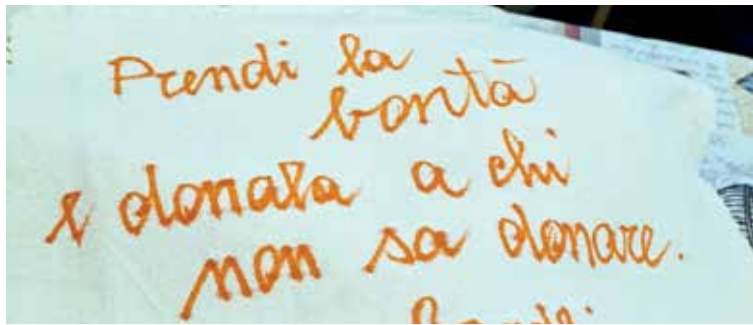 Prendi la
bontà
e donala a chi
non sa donare.